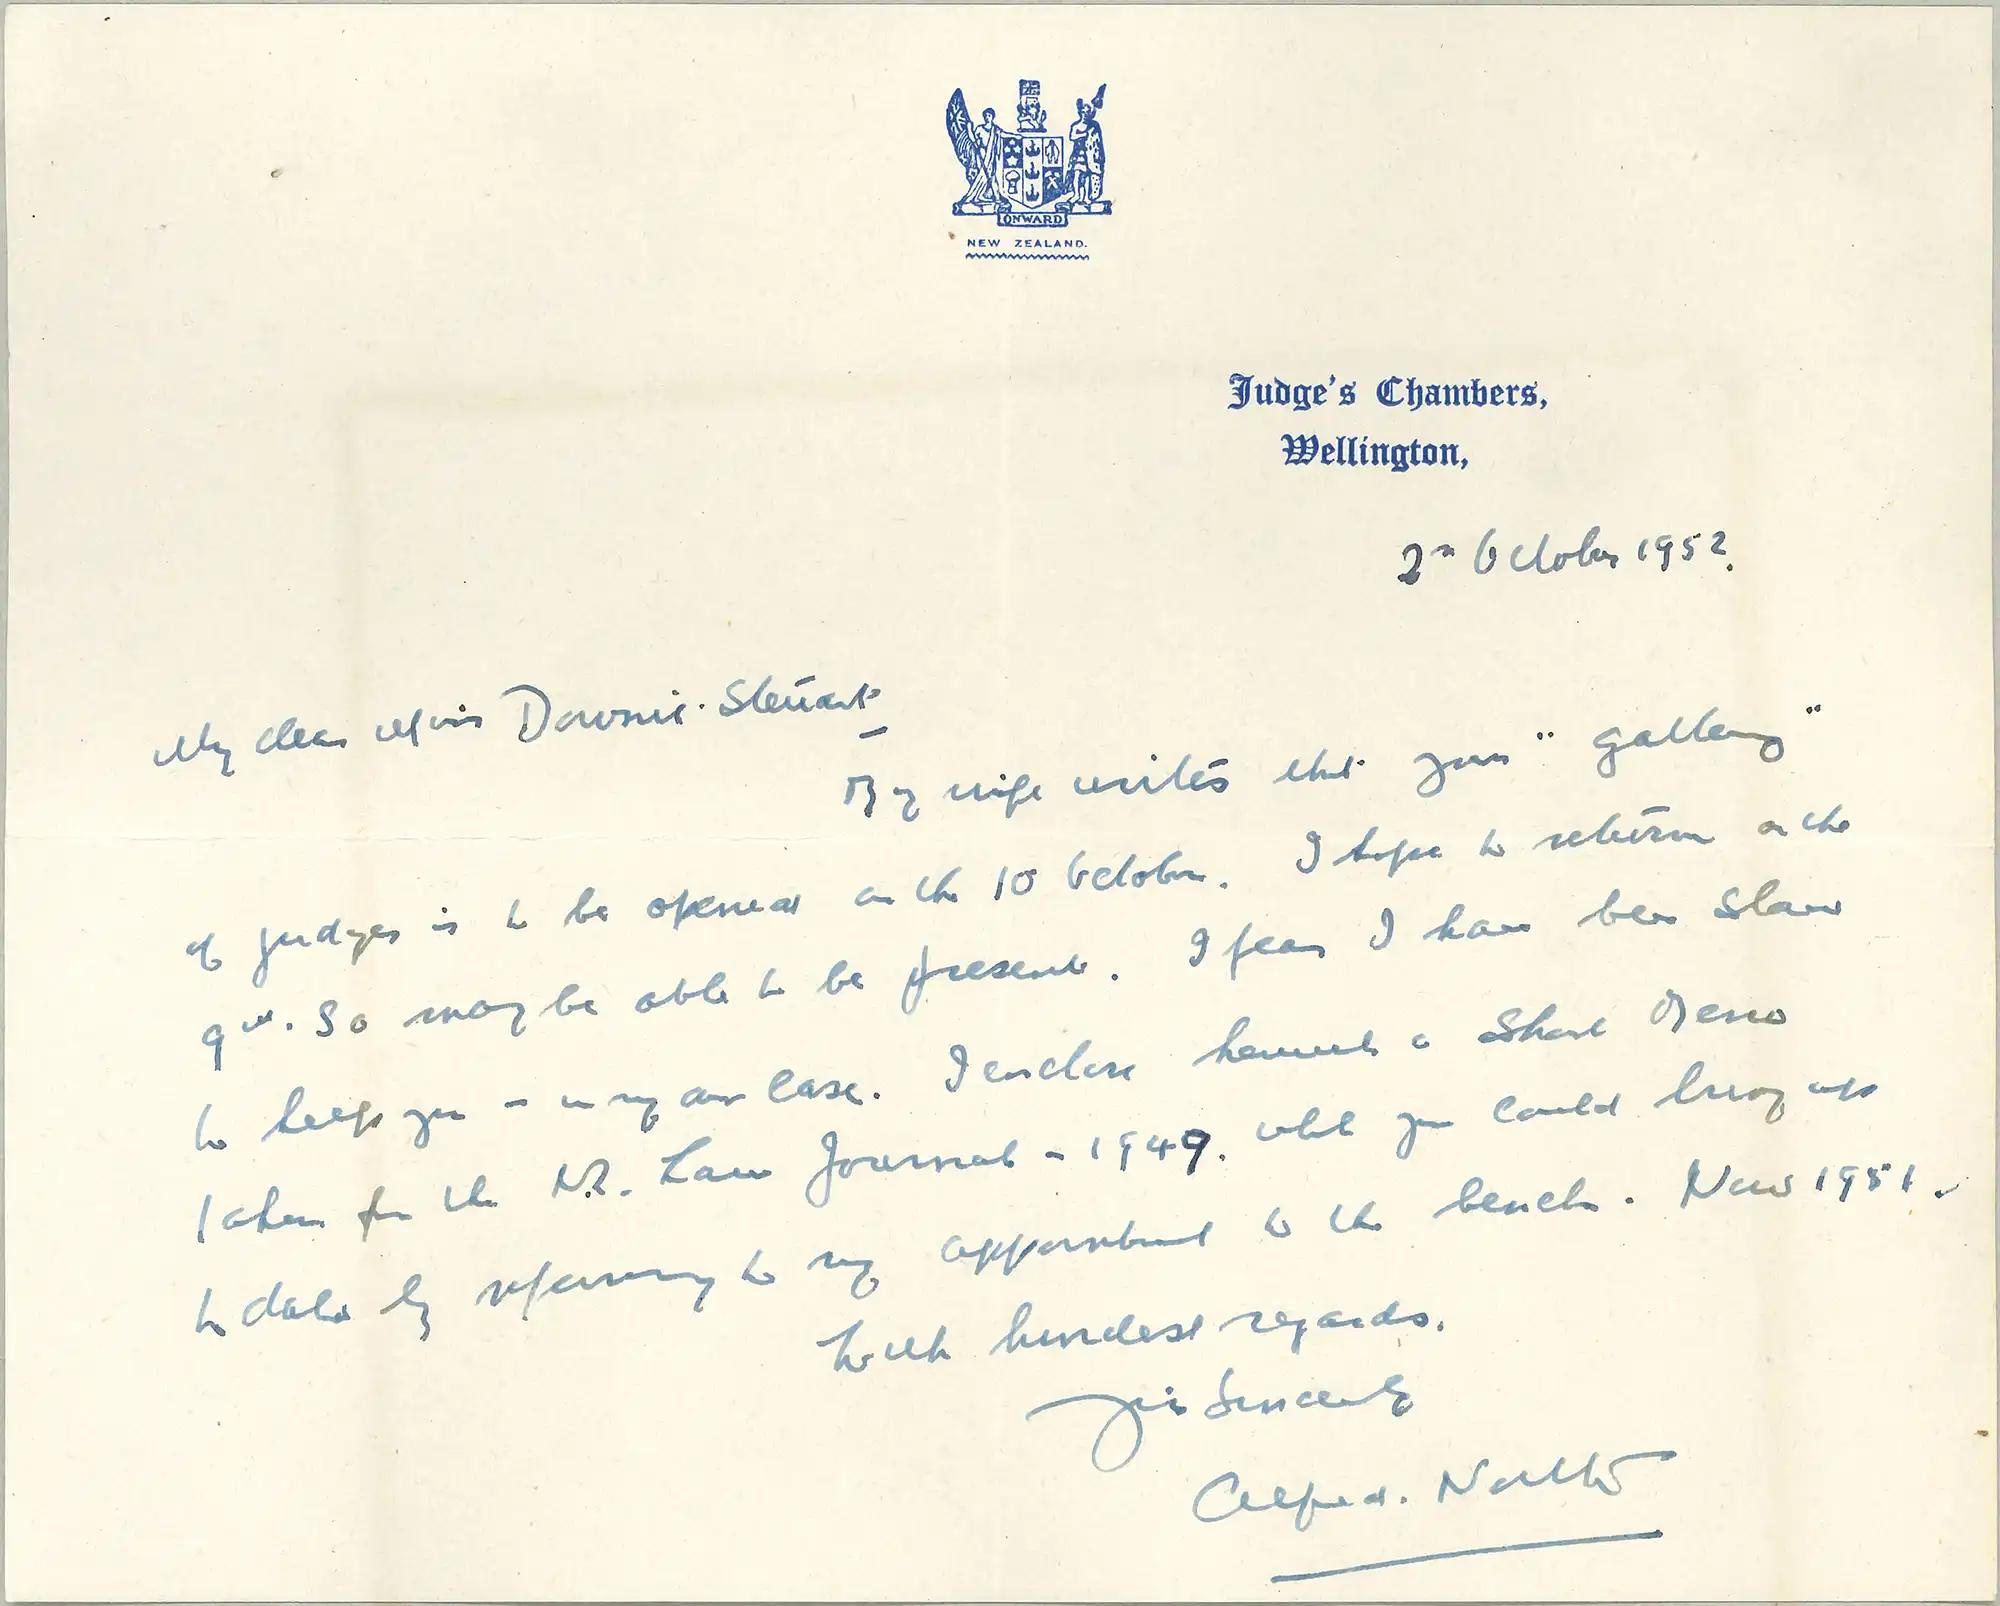 ONWARD
NEW ZEALAND.
Judge's Chambers,
Wellington,
2nd October 1952.
My dear Miss Downie-Stewart
My wife writes that your "gallery"
of judges is to be opened on the 10 October. I hope to return on the
9th. So may be able to be present. I fear I have been slow
to help you – in my own case. I enclose herewith a short Memo
taken from the N.Z. Law Journal – 1949. which you could bring up
to date by referring to my appointment to the bench. Nov 1951.
With kindest regards.
Yrs Sincerely
Alfred. North